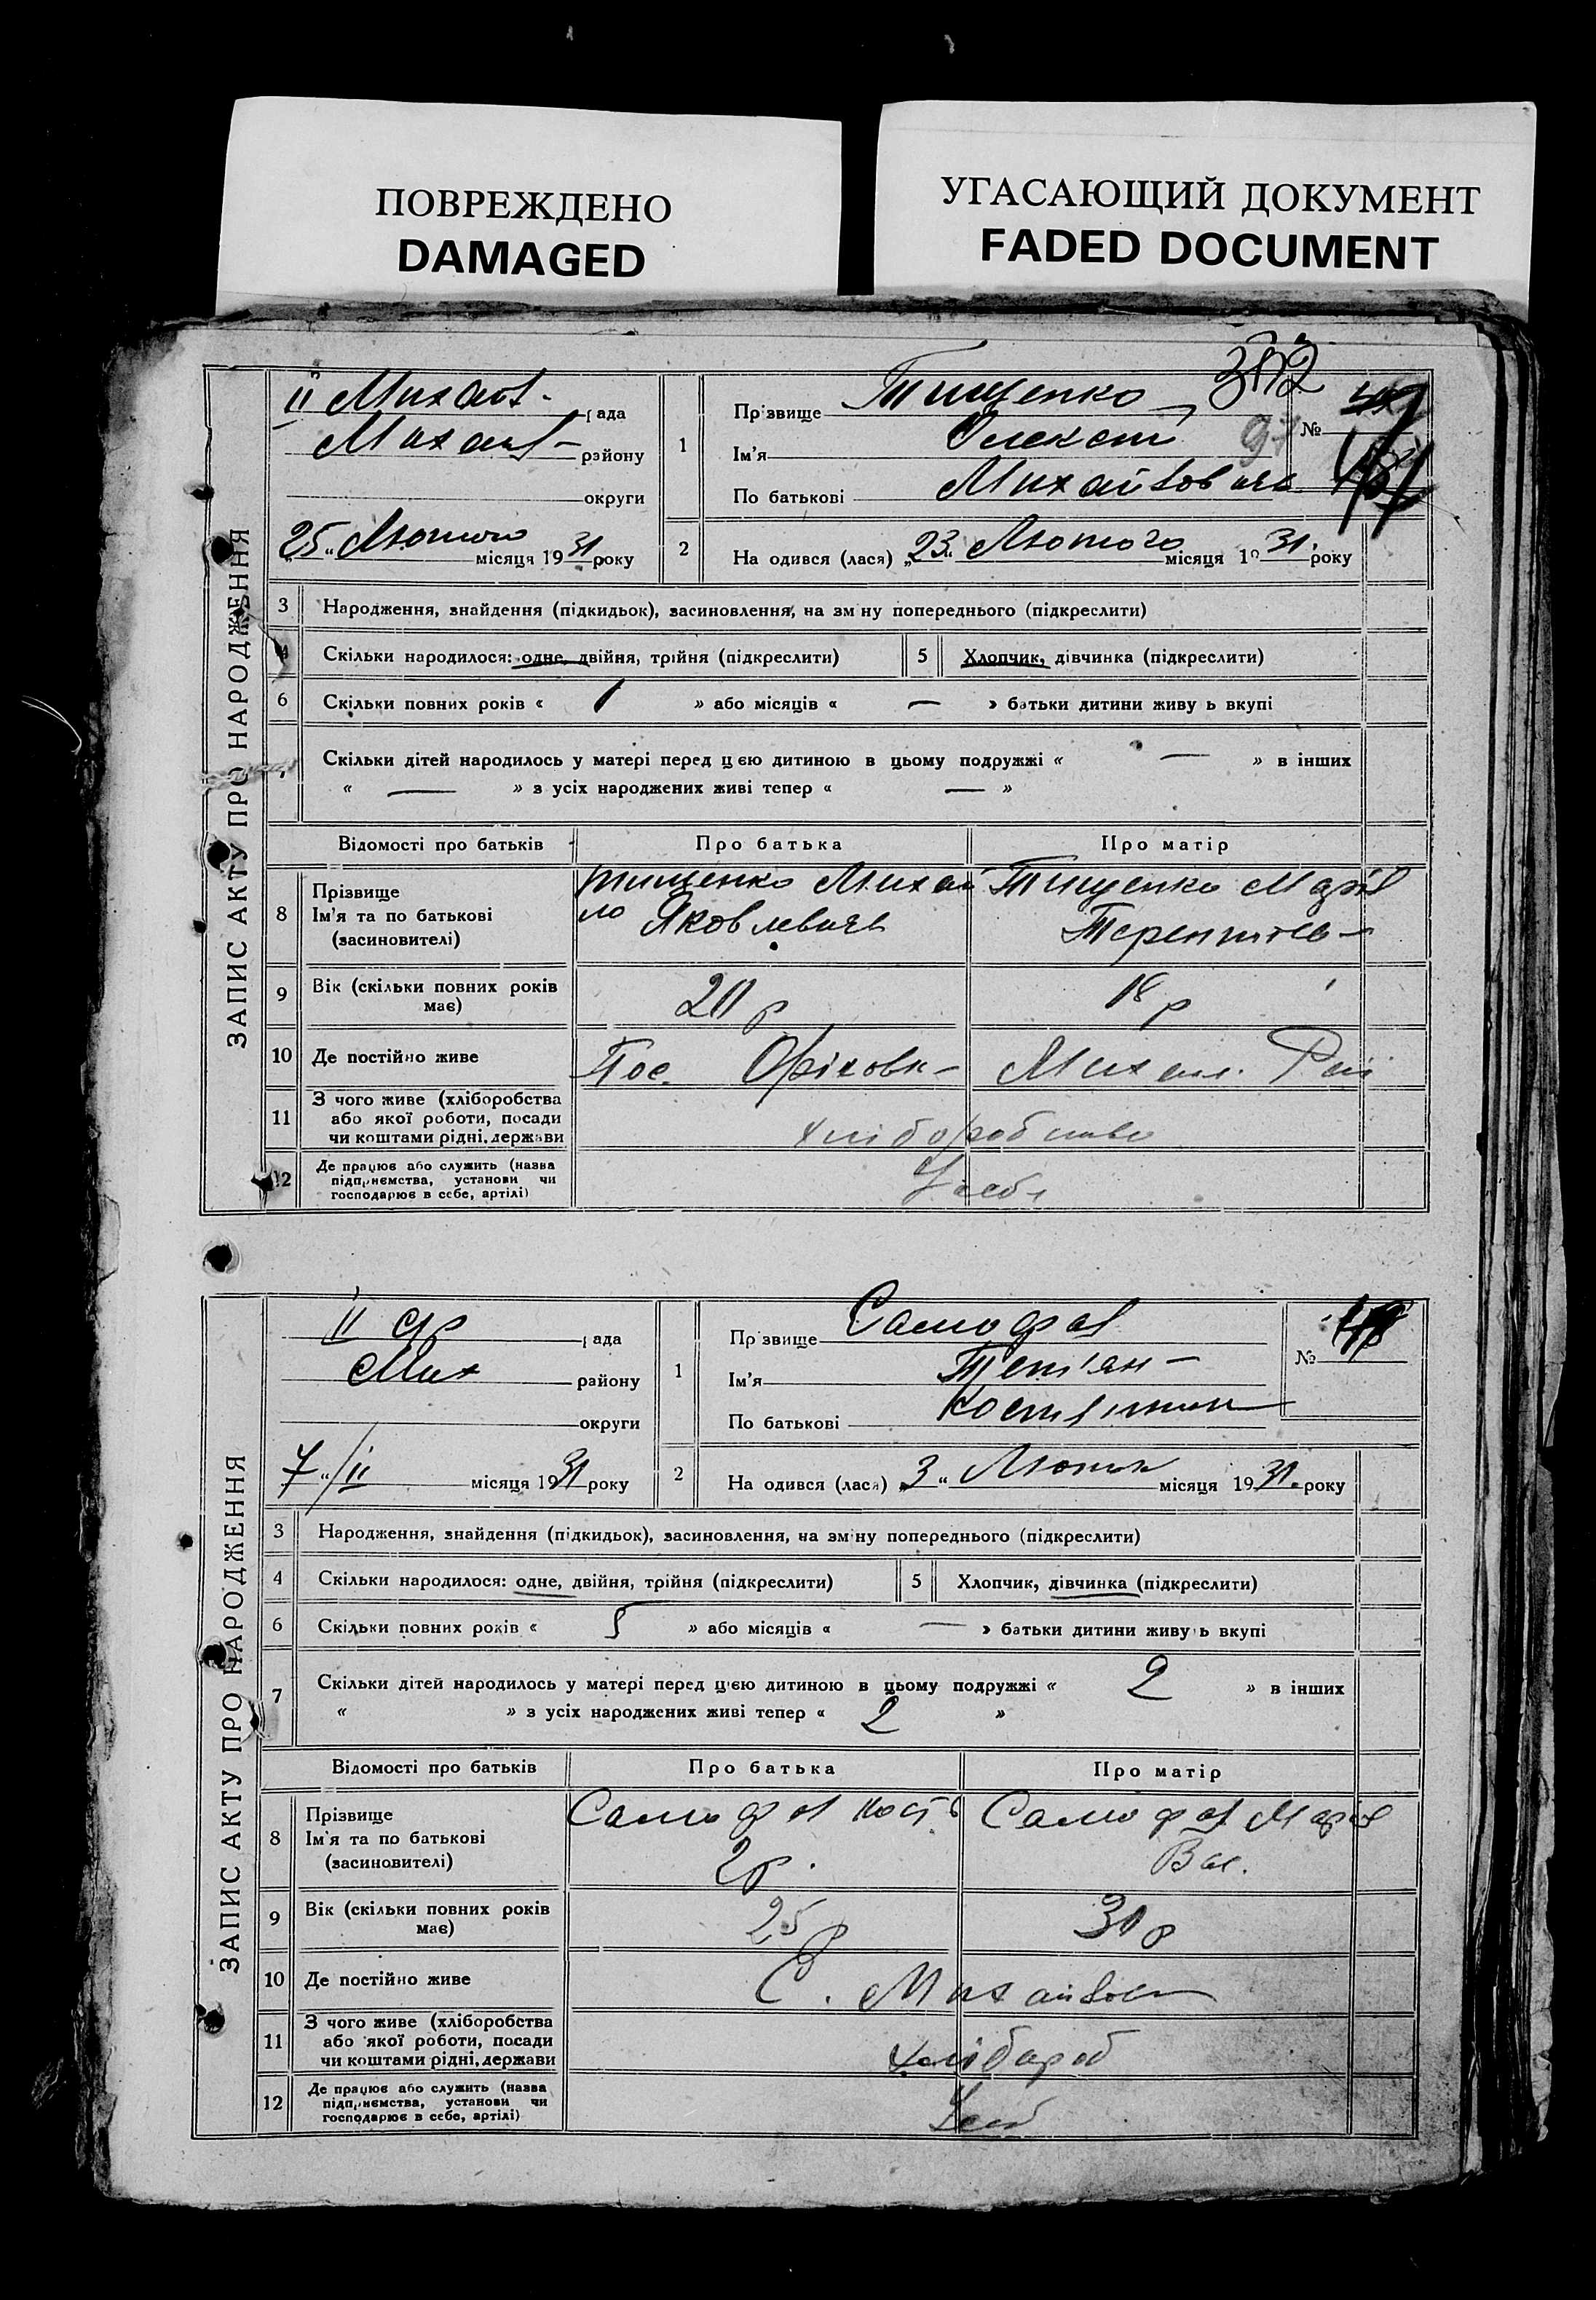 ПОВРЕЖДЕНО
DAMAGED
УГАСАЮЩИЙ ДОКУМЕНТ
FADED DOCUMENT
ЗАПИС АКТУ ПРО НАРОДЖЕННЯ
II Михайл- рада
Михайл- району
округи
„25“ Лютого місяця 1931 року
1 Прізвище Тищенко
Ім'я Олексій
По батькові Михайлович
№
2 На одився (лася) „23“ Лютого місяця 1931 року
3 Народження, знайдення (підкидьок), засиновлення, на зм ну попереднього (підкреслити)
4 Скільки народилося: одне, двійня, трійня (підкреслити) 5 Хлопчик, дівчинка (підкреслити)
6 Скільки повних років « 1 » або місяців « — » батьки дитини живу ь вкупі
7 Скільки дітей народилось у матері перед цею дитиною в цьому подружжі « — » в інших
« — » з усіх народжених живі тепер « — »
Відомості про батьків Про батька Про матір
8 Прізвище
Ім'я та по батькові
(засиновителі)
Тищенко Михай
ло Яковлевичь
Тищенко Марія
Терентіев-
9 Вік (скільки повних років
має)
20 р 18 р
10 Де постійно живе Пос. Оріховк- Михайл. Рай
11 З чого живе (хліборобства
або якої роботи, посади
чи коштами рідні, держави
хліборобство
12 Де працює або служить (назва
підприємства, установи чи
господарює в себе, артілі)
У себе
ЗАПИС АКТУ ПРО НАРОДЖЕННЯ
II ср рада
Мих району
округи
7“/II місяця 1931 року
1 Прізвище Самофал
Ім'я Тет'ян-
По батькові
№
2 На одився (лася) „3“ місяця 1931 року
3 Народження, знайдення (підкидьок), засиновлення, на зміну попереднього (підкреслити)
4 Скільки народилося: одне, двійня, трійня (підкреслити) 5 Хлопчик, дівчинка (підкреслити)
6 Скільки повних років « 5 » або місяців « — » батьки дитини живуть вкупі
7 Скільки дітей народилось у матері перед цією дитиною в цьому подружжі « 2 » в інших
« » з усіх народжених живі тепер « 2 »
Відомості про батьків Про батька Про матір
8 Прізвище
Ім'я та по батькові
(засиновителі)
Самофал Кость
Самофал Марія
Вас.
9 Вік (скільки повних років
має)
25 р 30 р
10 Де постійно живе С.
11 З чого живе (хліборобства
або якої роботи, посади
чи коштами рідні, держави
хлібороб
12 Де працює або служить (назва
підприємства, установи чи
господарює в себе, артілі)
У себ